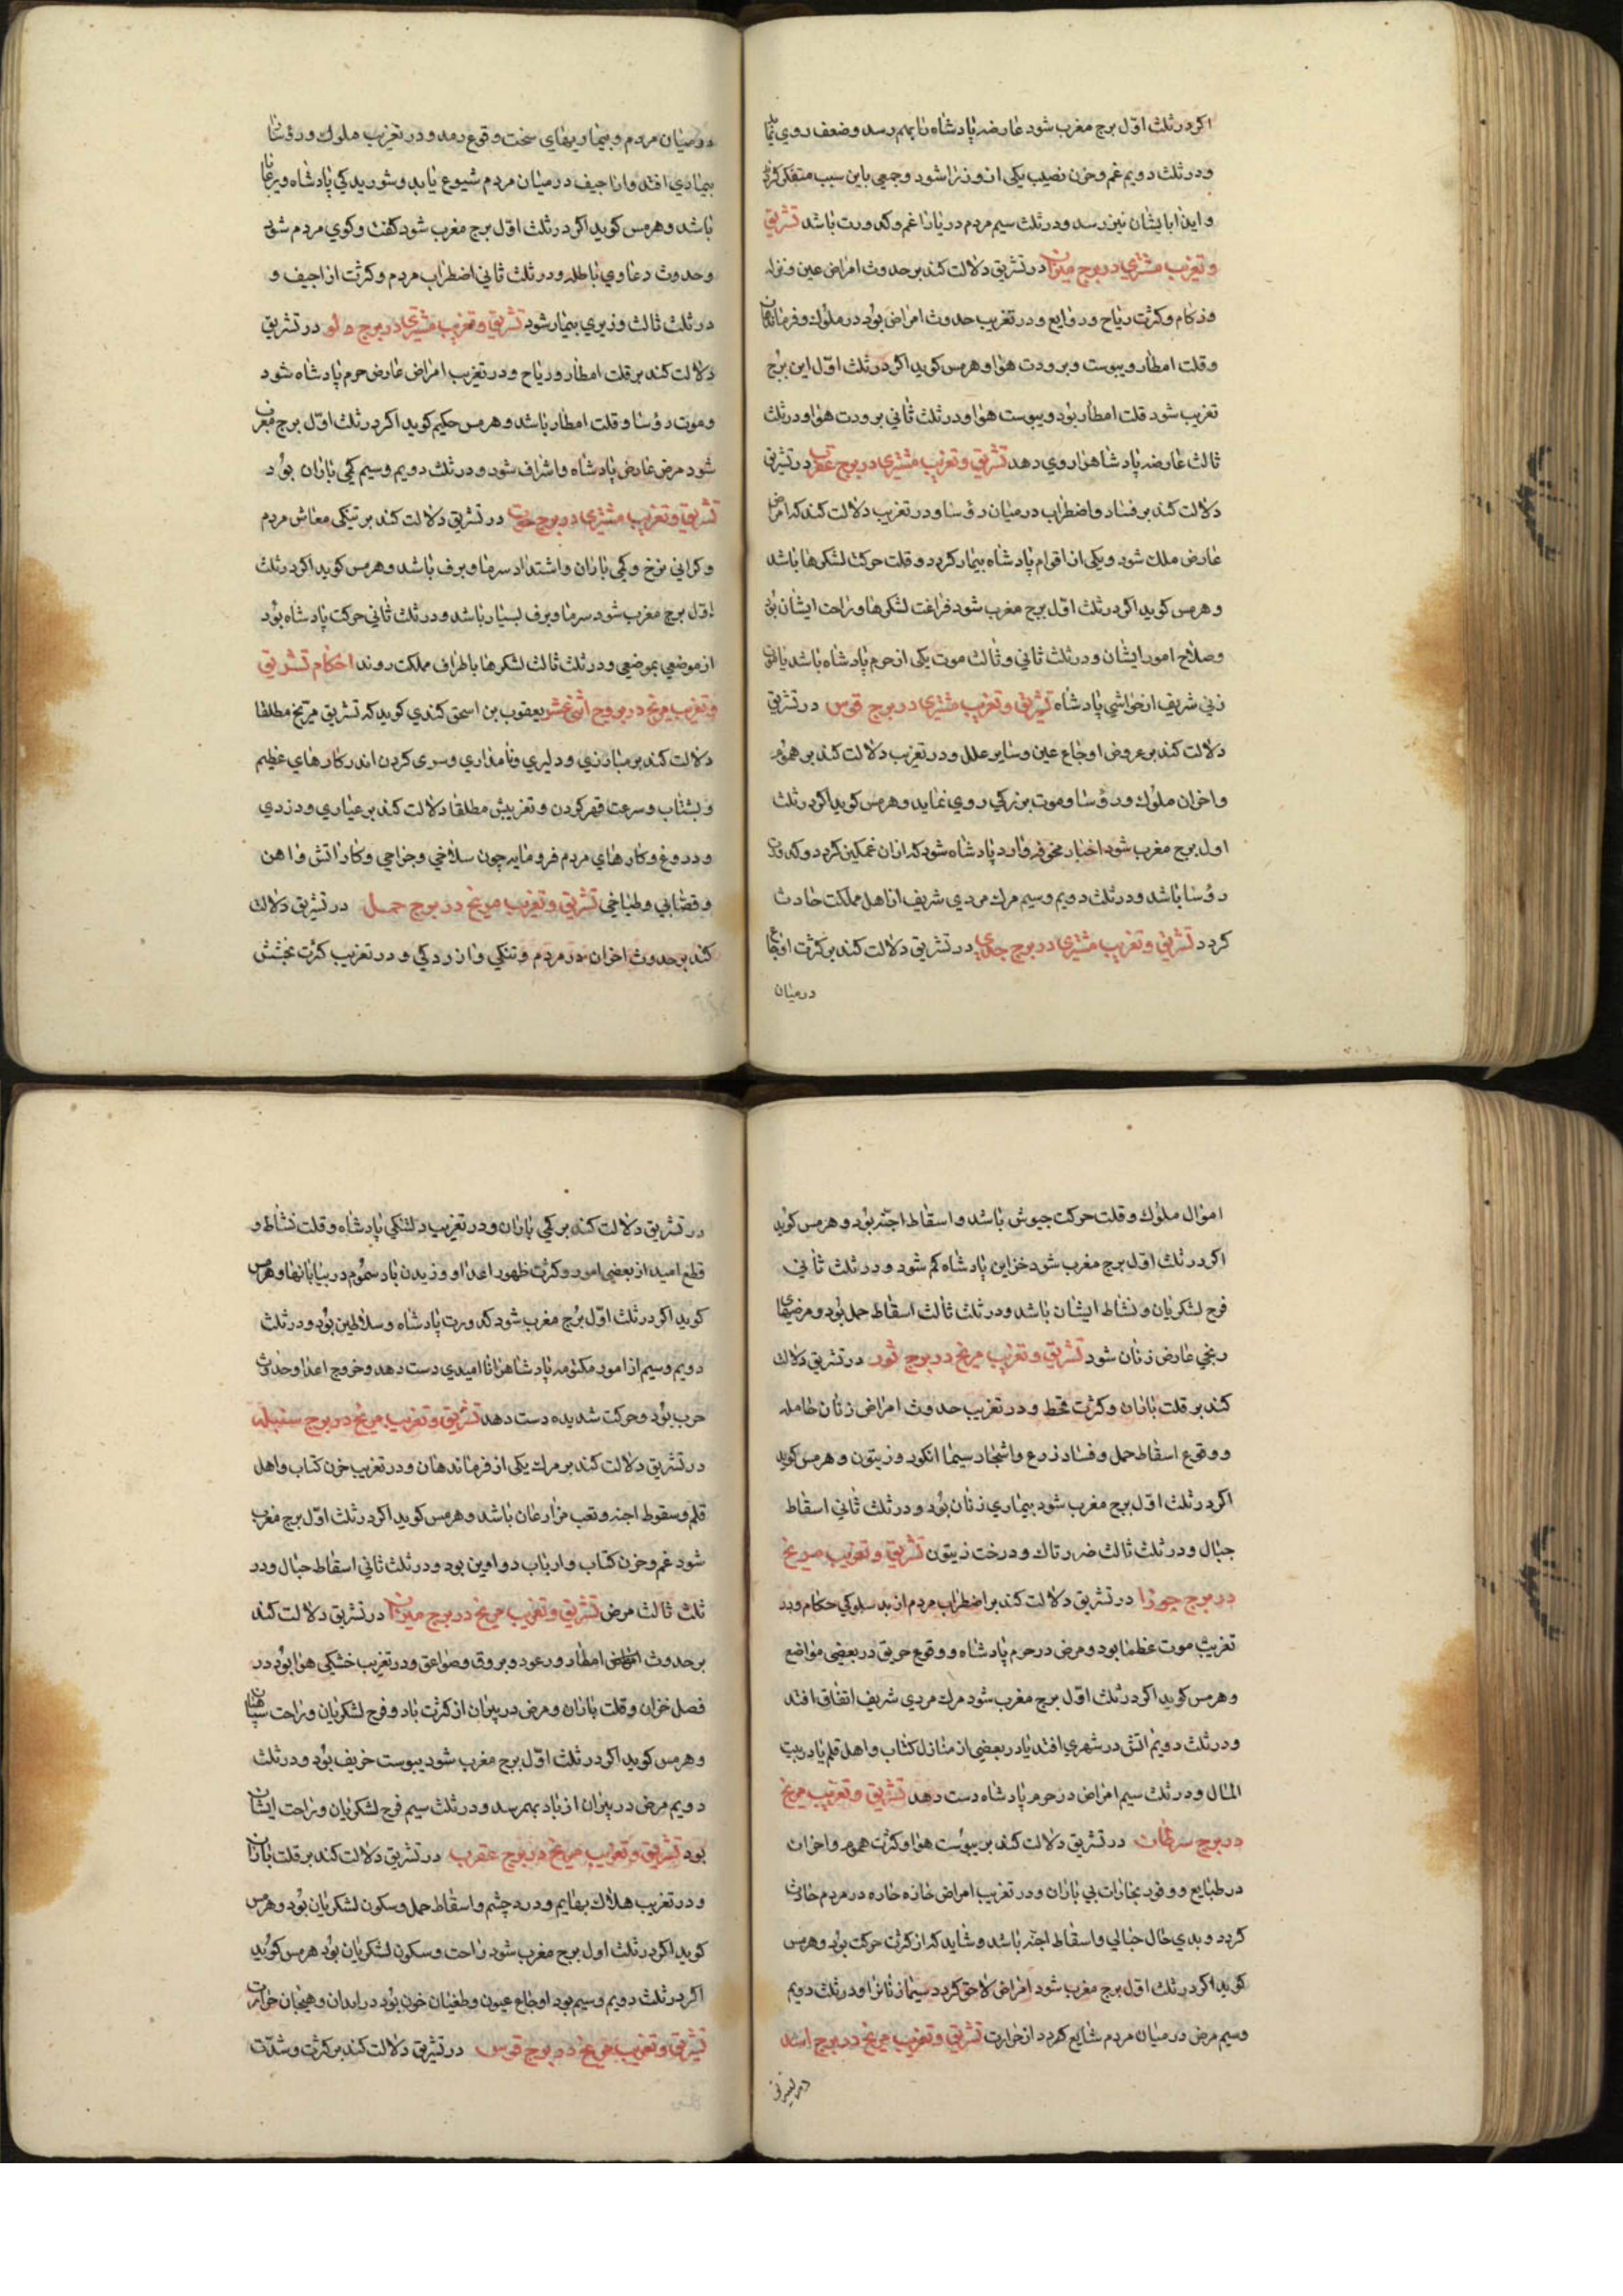 اگر در ثلث اوّل برج مغرب شود عارضه پادشاه را بهم رسد وضعف روی نماید
ودر ثلث دویم غم وحزن نصیب یکی از وزرا شود وجمعی باین سبب متفکر کردند
وایذا بایشان نیز رسد ودر ثلث سیم مردم دریا را غم وکدورت باشد تشریق
وتغریب مشتری در برج میزان در تشریق دلالت کند بر حدوث امراض عین ونزله
وزکام وکثرت ریاح وروایع ودر تغریب حدوث امراض بود در ملوک وفرماندهان
وقلت امطار ویبوست وبرودت هوا وهرمس کوید اکر در ثلث اوّل این برج
تغریب شود قلت امطار بود ویبوست هوا ودر ثلث ثانی برودت هوا ودر ثلث
ثالث عارضه پادشاهرا روی دهد تشریق وتغریب مشتری در برج عقرب در تشریق
دلالت کند بر فساد واضطراب در میان رؤسا ودر تغریب دلالت کند که امراض
عارض ملک شود ویکی از اقوام پادشاه بیمار کردد وقلت حرکت لشکرها باشد
وهرمس کوید اکر در ثلث اوّل برج مغرب شود فراغت لشکرها وراحت ایشان بود
وصلاح امور ایشان ودر ثلث ثانی وثالث موت یکی از حرم پادشاه باشد یا فوت
زنی شریف از حواشی پادشاه تشریق وتغریب مشتری در برج قوس در تشریق
دلالت کند بر عروض اوجاع عین وسایر علل ودر تغریب دلالت کند بر هموم
واحزان ملوک ورؤسا وموت بزرکی روی نماید وهرمس کوید اکر در ثلث
اول برج مغرب شود اخبار مخوفه وارد پادشاه شود که ازان غمکین کردد وکدورت
رؤسا باشد ودر ثلث دویم وسیم مرک مردی شریف از اهل مملکت حادث
کردد تشریق وتغریب مشتری در برج جدی در تشریق دلالت کند بر کثرت اوجاع
درمیان
در میان مردم وبیماریهای سخت وقوع رمد ودر تغریب ملوک ورؤسا را
بیماری افتد واراجیف در میان مردم شیوع یابد وشوریدکی پادشاه ورعایا
باشد وهرمس کوید اکر در ثلث اوّل برج مغرب شود کفت وکوی مردم شود
وحدوث دعاوی باطله ودر ثلث ثانی اضطراب مردم وکثرت اراجیف و
در ثلث ثالث وزیری بیمار شود تشریق وتغریب مشتری در برج دلو در تشریق
دلالت کند بر قلت امطار وریاح ودر تغریب امراض عارض حرم پادشاه شود
وموت رؤسا وقلت امطار باشد وهرمس حکیم کوید اکر در ثلث اوّل برج مغرب
شود مرض عارض پادشاه واشراف شود ودر ثلث دویم وسیم کمی باران بود
تشریق وتغریب مشتری در برج حوت در تشریق دلالت کند بر تنکی معاش مردم
وکرانی نرخ وکمی باران واشتداد سرما وبرف باشد وهرمس کوید اکر در ثلث
اوّل برج مغرب شود سرما وبرف بسیار باشد ودر ثلث ثانی حرکت پادشاه بود
از موضعی بموضعی ودر ثلث ثالث لشکرها باطراف مملکت روند احکام تشریق
وتغریب مریخ در بروج اثنی عشر یعقوب بن اسحق کندی کوید که تشریق مریخ مطلقا
دلالت کند بر مبارزی ودلیری ونامداری وسری کردن اندر کارهای عظیم
وبشتاب وسرعت قهر کردن وتغریبش مطلقا دلالت کند بر عیاری ودزدی
ودروغ وکارهای مردم فرومایه چون سلاخی وجراحی وکار آتش وآهن
وقصابی وطباخی تشریق وتغریب مریخ در برج حمل در تشریق دلالت
کند بر حدوث احزان در مردم وتنکی وآزردکی ودر تغریب کثرت بخشش
اموال ملوک وقلت حرکت جیوش باشد واسقاط اجنّه بود وهرمس کوید
اکر در ثلث اوّل برج مغرب شود خزاین پادشاه کم شود ودر ثلث ثانی
فرح لشکریان ونشاط ایشان باشد ودر ثلث ثالث اسقاط حمل بود ومرضهای
رنجی عارض زنان شود تشریق وتغریب مریخ در برج ثور در تشریق دلالت
کند بر قلت باران وکثرت قحط ودر تغریب حدوث امراض زنان حامله
ووقوع اسقاط حمل وفساد زرع واشجار سیما انکور وزیتون وهرمس کوید
اکر در ثلث اوّل برج مغرب شود بیماری زنان بود ودر ثلث ثانی اسقاط
حبال ودر ثلث ثالث ضرر تاک ودرخت زیتون تشریق وتغریب مریخ
در برج جوزا در تشریق دلالت کند بر اضطراب مردم از بد سلوکی حکام ودر
تغریب موت عظما بود ومرض در حرم پادشاه ووقوع حریق در بعضی مواضع
وهرمس کوید اکر در ثلث اوّل برج مغرب شود مرک مردی شریف اتفاق افتد
ودر ثلث دویم آتش در شهری افتد یا در بعضی از منازل کتاب واهل قلم یا در بیت
المال ودر ثلث سیم امراض در حرم پادشاه دست دهد تشریق وتغریب مریخ
در برج سرطان در تشریق دلالت کند بر یبوست هوا وکثرت هموم واحزان
در طبایع ووفور بخارات بی باران ودر تغریب امراض حاره در مردم حادث
کردد وبدی حال حبالی واسقاط اجنّه باشد وشاید که از کثرت حرکت بود وهرمس
کوید اکر در ثلث اوّل برج مغرب شود امراض لاحق کردد سیما زنانرا ودر ثلث دویم
وسیم مرض در میان مردم شایع کردد از حرارت تشریق وتغریب مریخ در برج اسد
در تشریق
در تشریق دلالت کند بر کمی باران ودر تغریب دلتنکی پادشاه وقلت نشاط و
قطع امید از بعضی امور وکثرت ظهور اعدا ووزیدن باد سموم در بیابانها وهرمس
کوید اکر در ثلث اوّل برج مغرب شود کدورت پادشاه وسلاطین بود ودر ثلث
دویم وسیم از امور مکتومه پادشاهرا ناامیدی دست دهد وخروج اعدا وحدوث
حرب بود وحرکت شدیده دست دهد تشریق وتغریب مریخ در برج سنبله
در تشریق دلالت کند بر مرک یکی از فرماندهان ودر تغریب حزن کتاب واهل
قلم وسقوط اجنه وتعب مزارعان باشد وهرمس کوید اکر در ثلث اوّل برج مغرب
شود غم وحزن کتاب وارباب دواوین بود ودر ثلث ثانی اسقاط حبال ودر
ثلث ثالث مرض تشریق وتغریب مریخ در برج میزان در تشریق دلالت کند
بر حدوث امطار ورعود وبروق وصواعق ودر تغریب خشکی هوا بود در
فصل خزان وقلت باران ومرض در پیران از کثرت باد وفرح لشکریان وراحت سپاهیان
وهرمس کوید اکر در ثلث اوّل برج مغرب شود یبوست خریف بود ودر ثلث
دویم مرض در پیران از باد بهم رسد ودر ثلث سیم فرح لشکریان وراحت ایشان
بود تشریق وتغریب مریخ در برج عقرب در تشریق دلالت کند بر قلت باران
ودر تغریب هلاک بهایم ودرد چشم واسقاط حمل وسکون لشکریان بود وهرمس
کوید اکر در ثلث اول برج مغرب شود راحت وسکون لشکریان بود هرمس کوید
اکر در ثلث دویم وسیم بود اوجاع عیون وطغیان خون بود در ابدان وهیجان حرارت
تشریق وتغریب مریخ در برج قوس در تشریق دلالت کند بر کثرت وشدّت